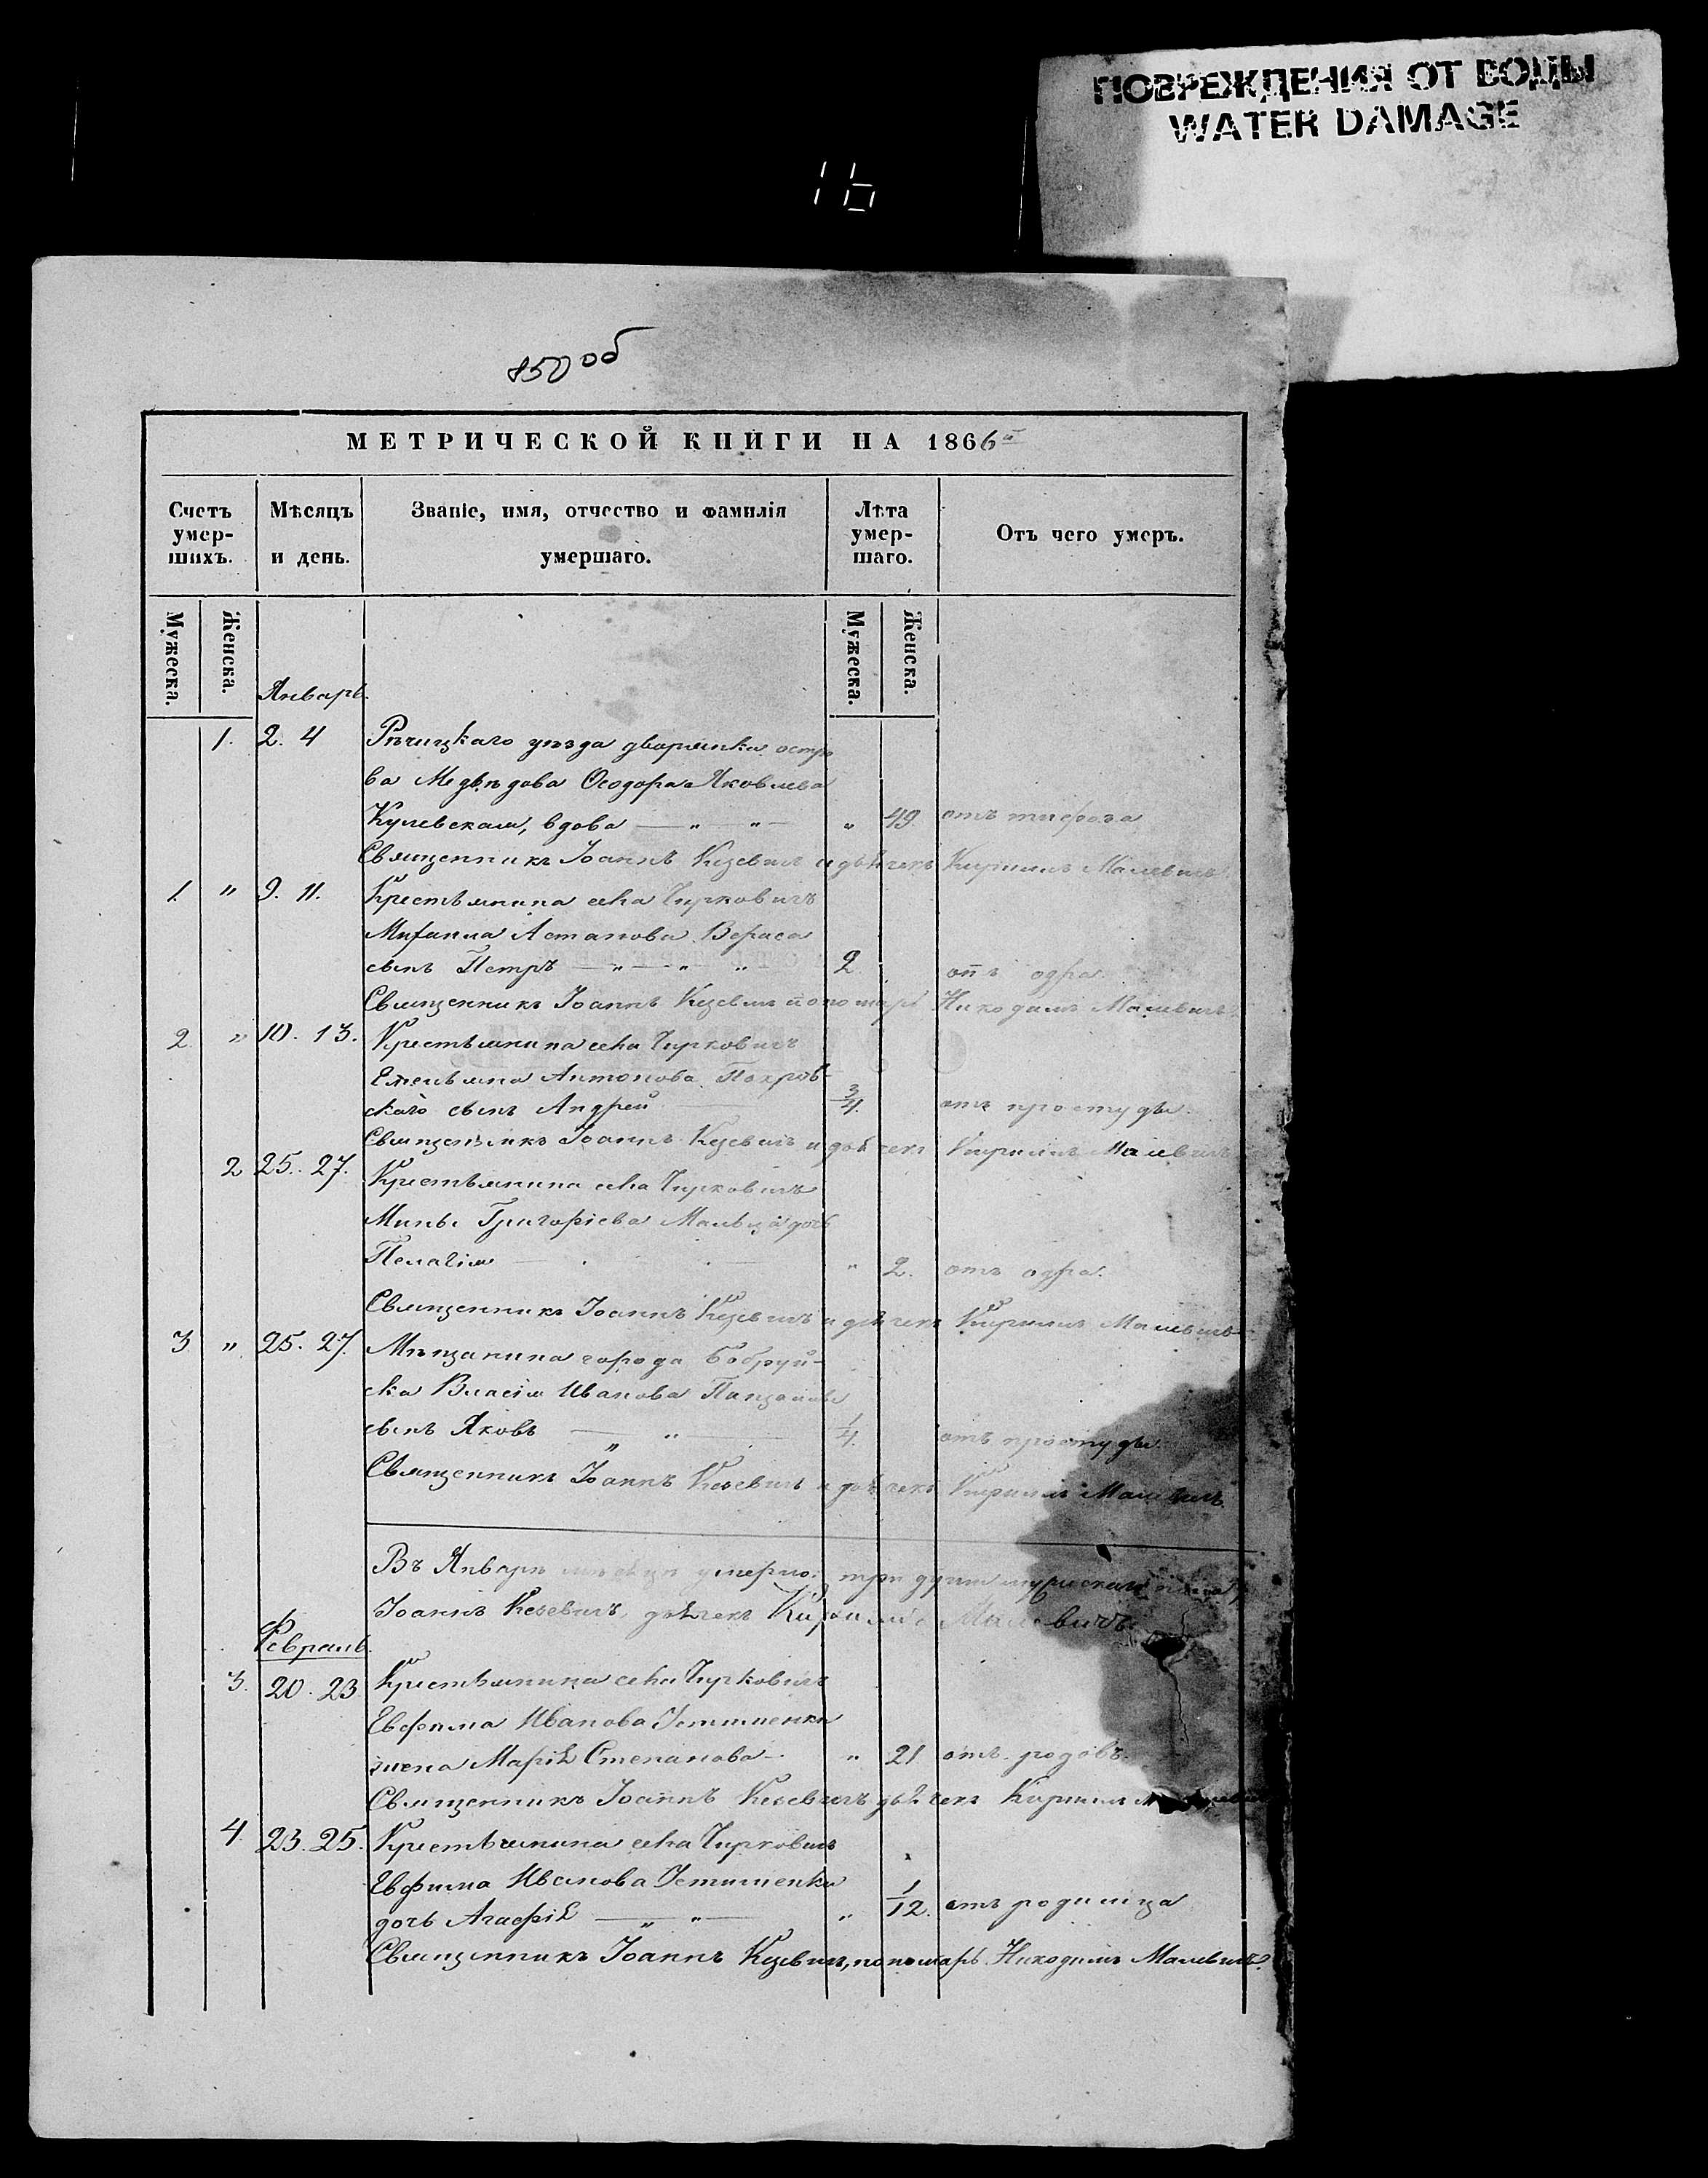 ПОВРЕЖДЕНИЯ ОТ ВОДЫ
WATER DAMAGE
16
850 об
МЕТРИЧЕСКОЙ КНИГИ НА 1866
Счетъ умер-шихъ.
Мѣсяцъ и день.
Званіе, имя, отчество и фамилія умершаго.
Лѣта умер-шаго.
Отъ чего умеръ.
Мужеска. Женска. Мужеска. Женска.
Январь.
1. 2. 4 Рѣчицкаго уѣзда дворянка остро
ва Медвѣдова Ѳеодора Яковлева
Кулевская, вдова — „ — „ — „ 49. отъ
Священникъ Іоаннъ Кезевичъ и дьячекъ Кириллъ Малевичъ.
1. „ 9. 11. Крестьянина села Чирковичъ
Михаила Астапова Вераса
сынъ Петръ — „ — „ „ 2. отъ одра.
Священникъ Іоаннъ Кезевичъ пономарь Никодимъ Малевичъ.
2. „ 10. 13. Крестьянина села Чирковичъ
Емельяна Антонова Покров-
скаго сынъ Андрей 3/4. отъ простуды.
Священникъ Іоаннъ Кезевичъ и дьячекъ Кириллъ Малевичъ
2 25. 27. Крестьянина села Чирковичъ
Мины Григоріева Мальца дочь
Пелагія — „ 2. отъ одра.
Священникъ Іоаннъ Кезевичъ и дьячекъ Кириллъ Малевичъ
3 „ 25. 27. Мѣщанина города Бобруй-
ска Власія Иванова
сынъ Яковъ — „ — „ — 1/4. отъ простуды.
Священникъ Іоаннъ Кезевичъ и дьячекъ Кириллъ Малевичъ.
Въ Январѣ мѣсяцѣ умерло: три души мужеска
Іоаннъ Кезевичъ, дьячекъ Кириллъ Малевичъ.
Февраль.
3. 20. 23 Крестьянина села Чирковичъ
Евфима Иванова Устименки
жена Марія Степанова — „ 21 отъ родовъ.
Священникъ Іоаннъ Кезевичъ дьячекъ Кириллъ
4. 23. 25. Крестьянина села Чирковичъ
Евфима Иванова Устименки
дочь Агафія — „ — „ — „ 1/12. отъ родимца
Священникъ Іоаннъ Кезевичъ, пономарь Никодимъ Малевичъ.